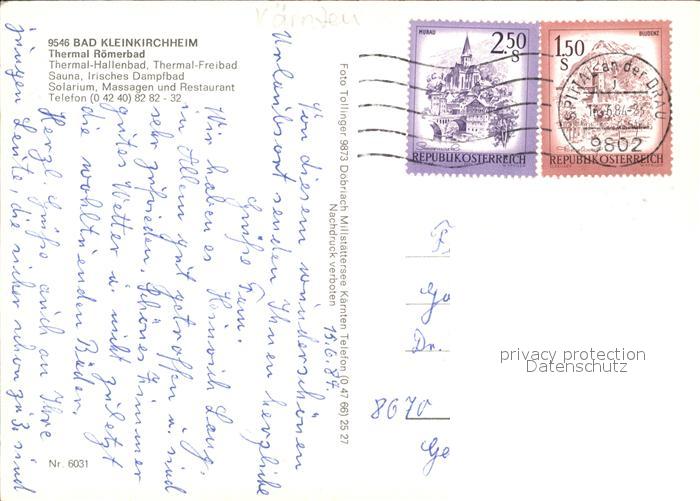 Kärnten
9546 BAD KLEINKIRCHHEIM
Thermal Römerbad
Thermal-Hallenbad, Thermal-Freibad
Sauna, Irisches Dampfbad
Solarium, Massagen und Restaurant
Telefon (0 42 40) 82 82 - 32
Nr. 6031
15.6.84.
Von diesem wunderschönen
Urlaubsort senden Ihnen herzliche
Grüße Fam.
Heinrich Lang.
Wir haben es
in Allem gut getroffen u. sind
sehr zufrieden. Schönes Zimmer
gutes Wetter u. nicht zuletzt
die wohltuenden Bäder.
Herzl. Grüße auch an Ihre
jungen Leute, die sicher schon zu 3. sind
Foto Tollinger 9873 Döbriach Millstättersee Kärnten Telefon (0 47 66) 25 27
Nachdruck verboten
MURAU
2.50
S
REPUBLIK ÖSTERREICH
BLUDENZ
1.50
S
REPUBLIK ÖSTERREICH
SPITTAL an der DRAU
9802
F
Ga
Dr.
8670
Ge
privacy protection
Datenschutz